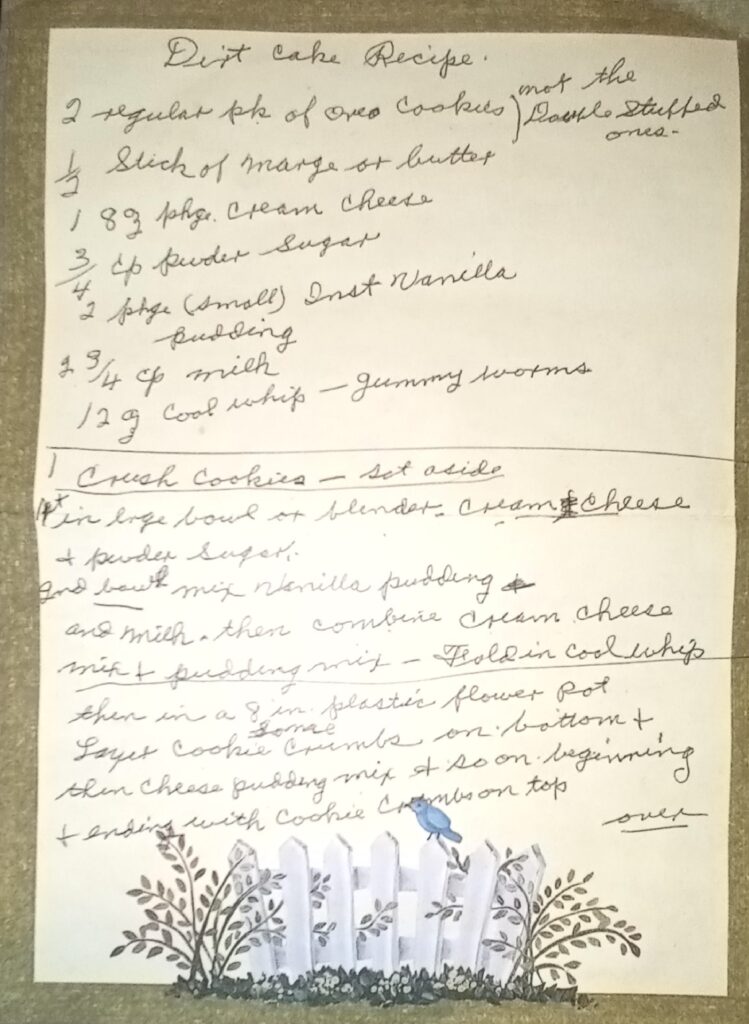 Dirt Cake Recipe.
2 regular pk of Oreo Cookies) not the
Double Stuffed
ones.
1/2 Stick of Marge or butter
1 8z phge. Cream Cheese
3/4 Cp puwder Sugar
2 phge (small) Inst Vanilla
pudding
2 3/4 Cp milk
12 z Cool whip - gummy worms
1 Crush Cookies - Set aside
1st in lrge bowl or blender. Cream Cheese
+ puwder Sugar.
2nd bowl mix Vanilla pudding
and milk. then combine Cream Cheese
mix + pudding mix - Fold in Cool whip
then in a 8 in. plastic flower pot
Layer some Cookie Crumbs on bottom +
then Cheese pudding mix + so on. beginning
+ ending with Cookie Crumbs on top
over